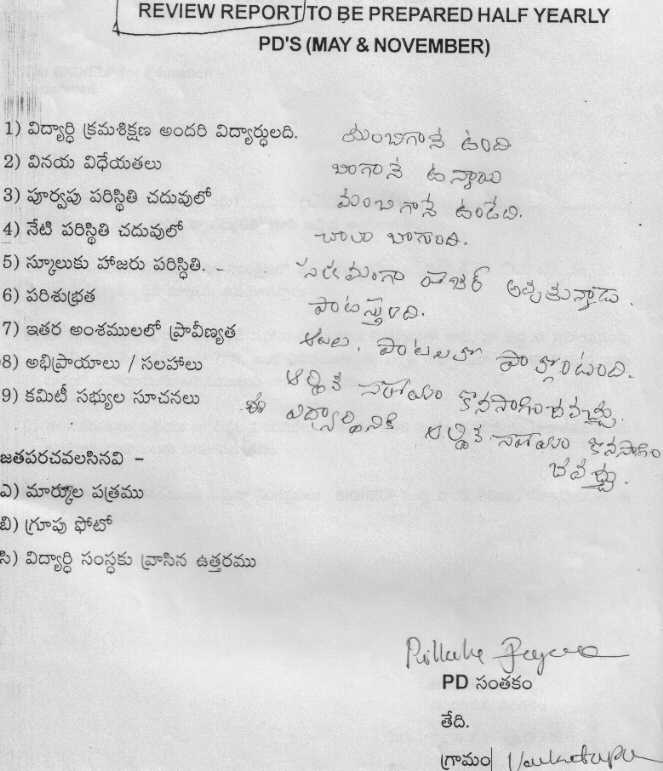 REVIEW REPORT TO BE PREPARED HALF YEARLY
PD'S (MAY & NOVEMBER)
1) విద్యార్ధి క్రమశిక్షణ అందరి విద్యార్ధులది. మంచిగానే ఉంది
2) వినయ విధేయతలు బాగానే ఉన్నాయి
3) పూర్వపు పరిస్థితి చదువులో మంచిగానే ఉండేది.
4) నేటి పరిస్థితి చదువులో చాలా బాగుంది.
5) స్కూలుకు హాజరు పరిస్థితి. హాజర్ అవ్వుతున్నాడు.
6) పరిశుభ్రత పాటిస్తుంది.
7) ఇతర అంశములలో ప్రావీణ్యత ఆటల, పాటలలో పాల్గొంటుంది.
8) అభిప్రాయాలు / సలహాలు ఆర్ధిక సహాయం కొనసాగించవచ్చు.
9) కమిటీ సభ్యుల సూచనలు ఈ విద్యార్ధినికి ఆర్ధిక సహాయం కొనసాగిం
చవచ్చు.
జతపరచవలసినవి –
ఎ) మార్కుల పత్రము
బి) గ్రూపు ఫోటో
సి) విద్యార్ధి సంస్థకు వ్రాసిన ఉత్తరము
PD సంతకం
తేది.
గ్రామం